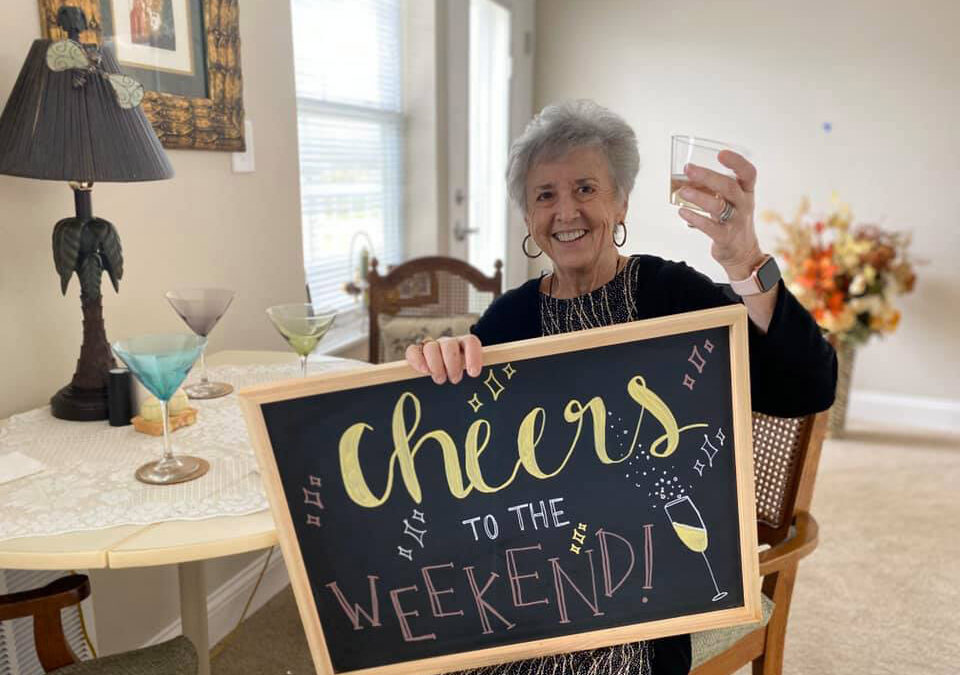 cheers
TO THE
WEEKEND!